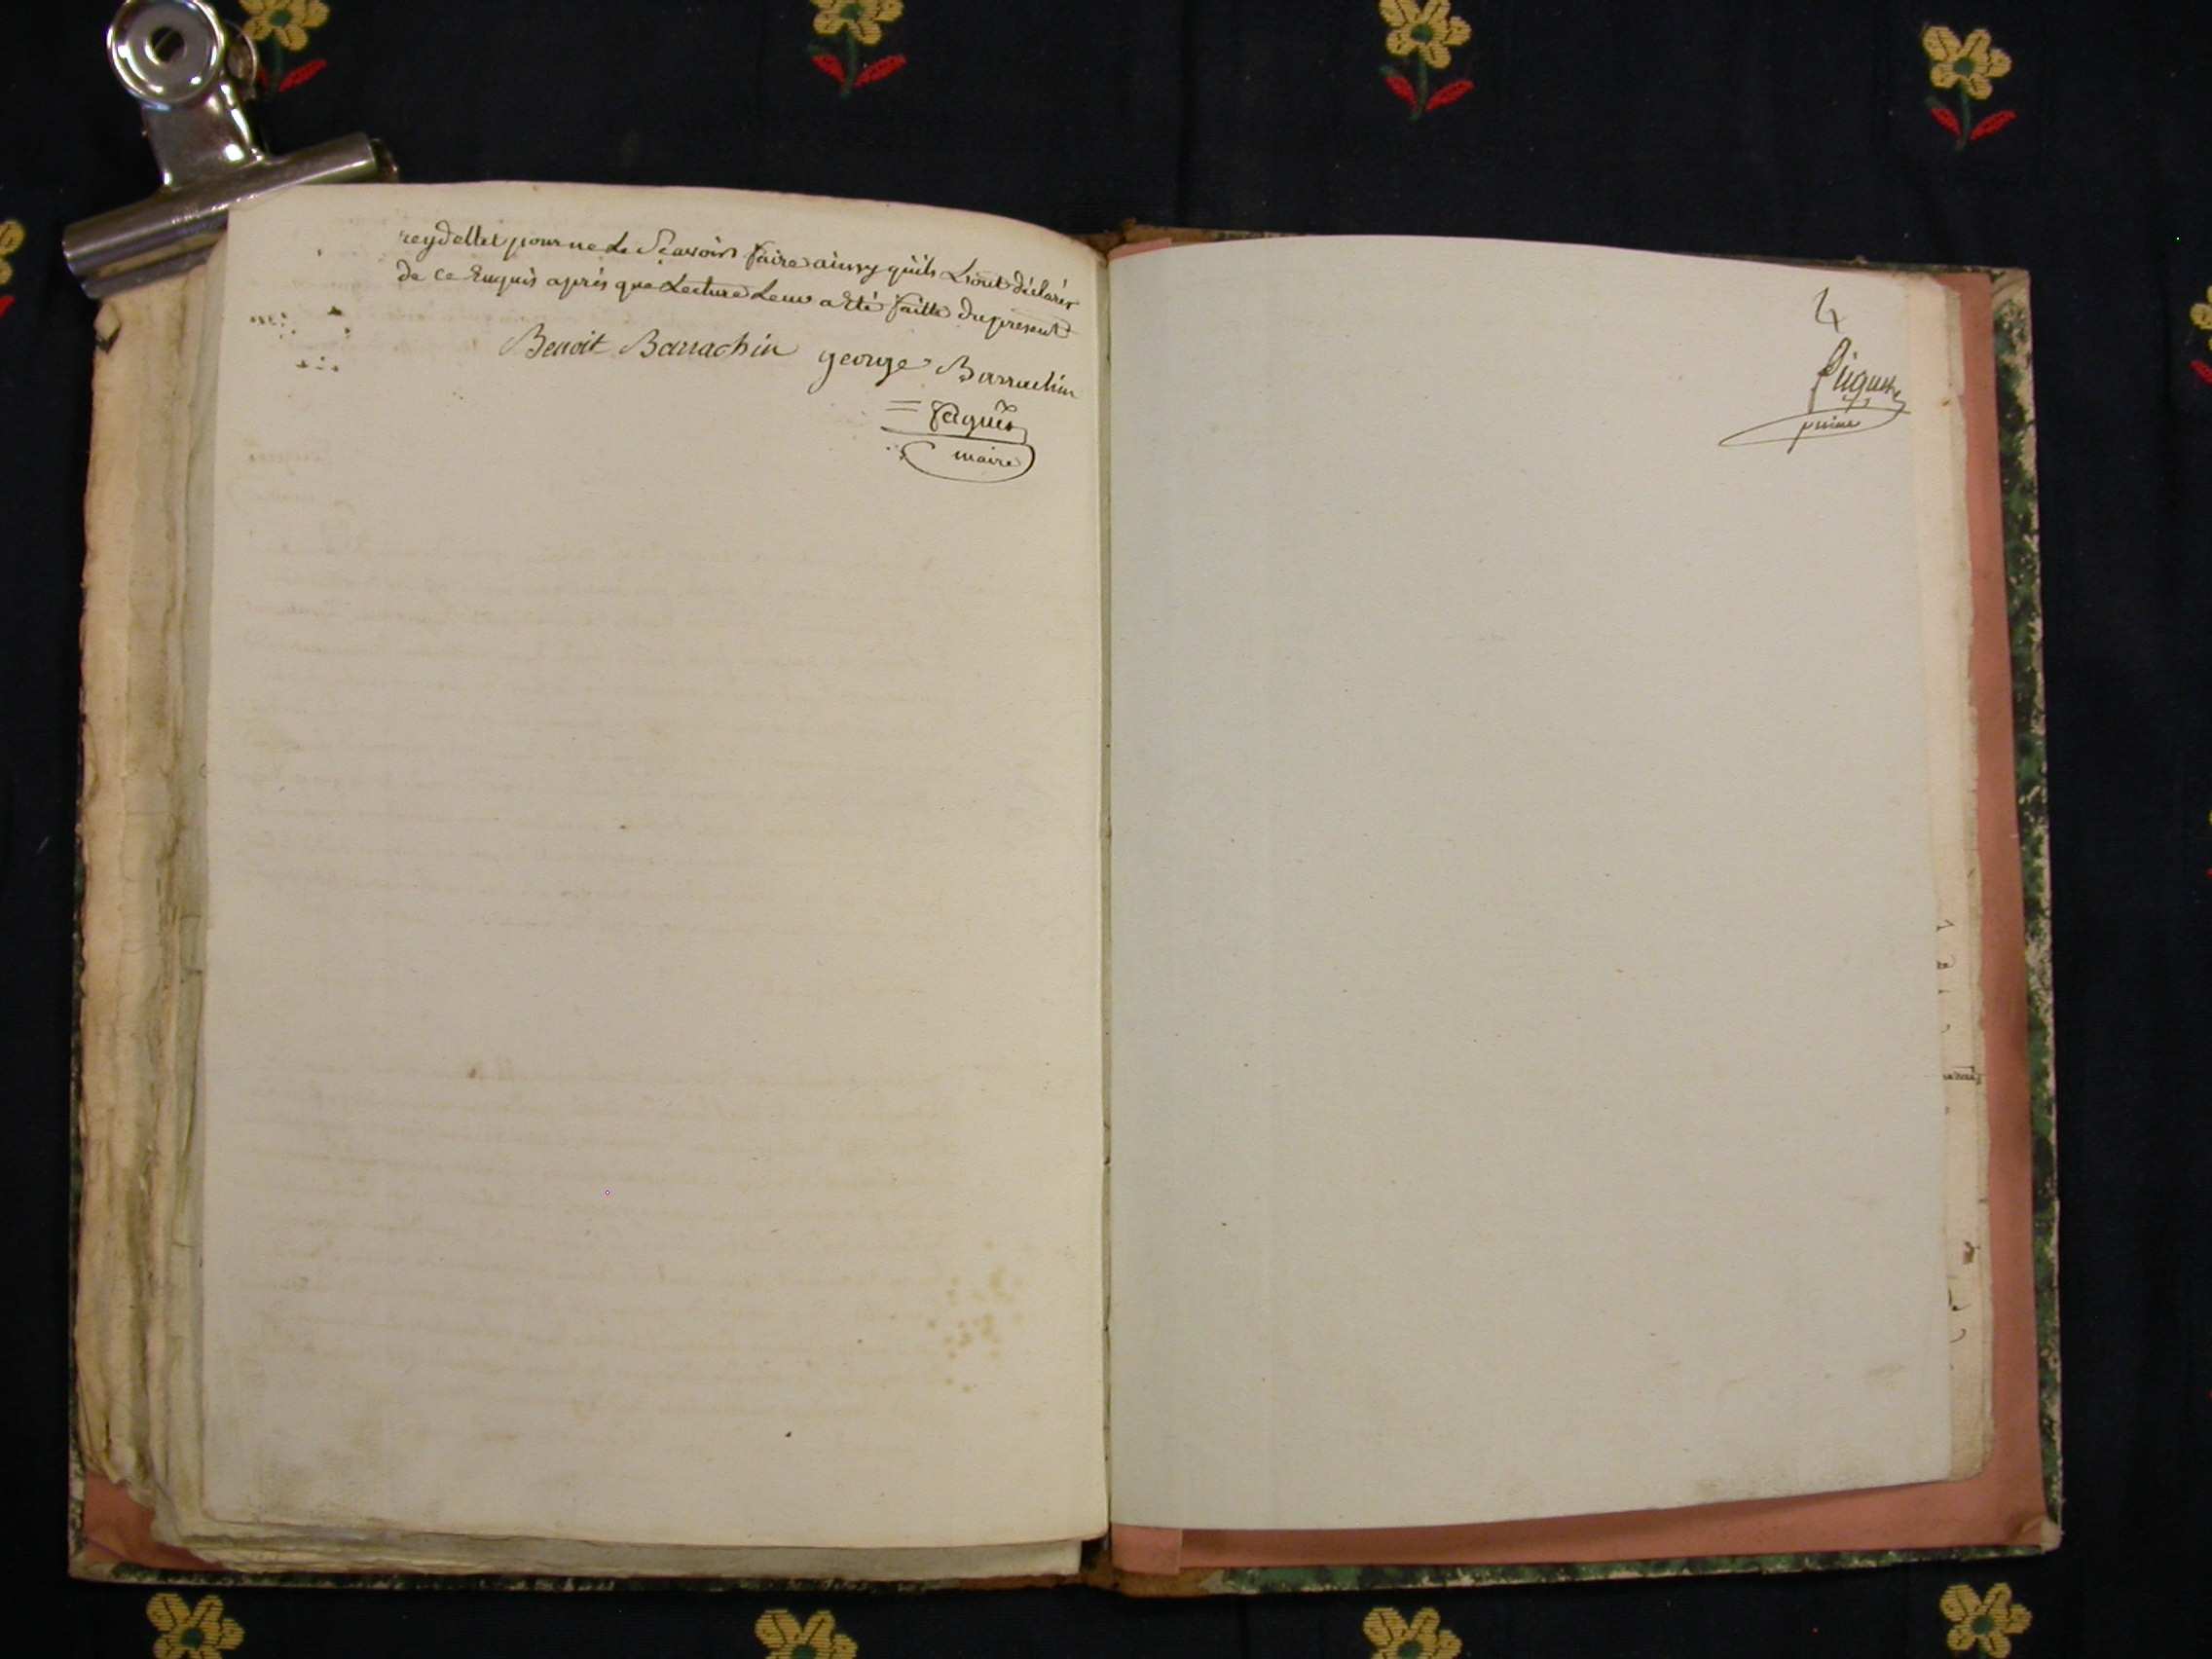 reydellet pour ne Le Scavoir faire ainsy quils L'ont déclarés
de ce Enquis aprés que Lecture Leur a Eté faitte du present
Benoit Barrachin george Barrachin
maire
4